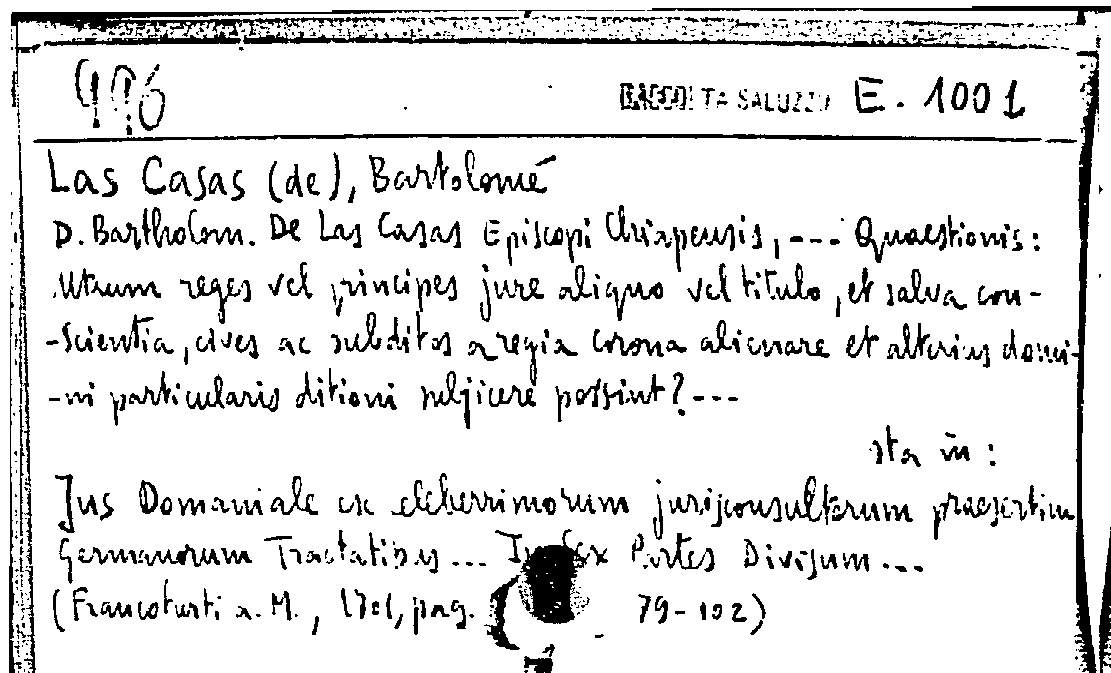 996 RACCOLTA SALUZZO E. 1001
Las Casas (de), Bartolomé
D. Bartholom. De Las Casas Episcopi Chiapensis, --- Quaestionis:
Utrum reges vel principes jure aliquo vel titulo, et salva con-
-scientia, cives ac subditos a regia corona alienare et alterius domi-
-ni particularis ditioni subjicere possint? ---
sta in:
Jus Domaniale ex celeberrimorum jurisconsultorum praesertim
Germanorum Tractatibus... In Sex Partes Divisum...
(Francofurti a. M., 1701, pag. 79-102)